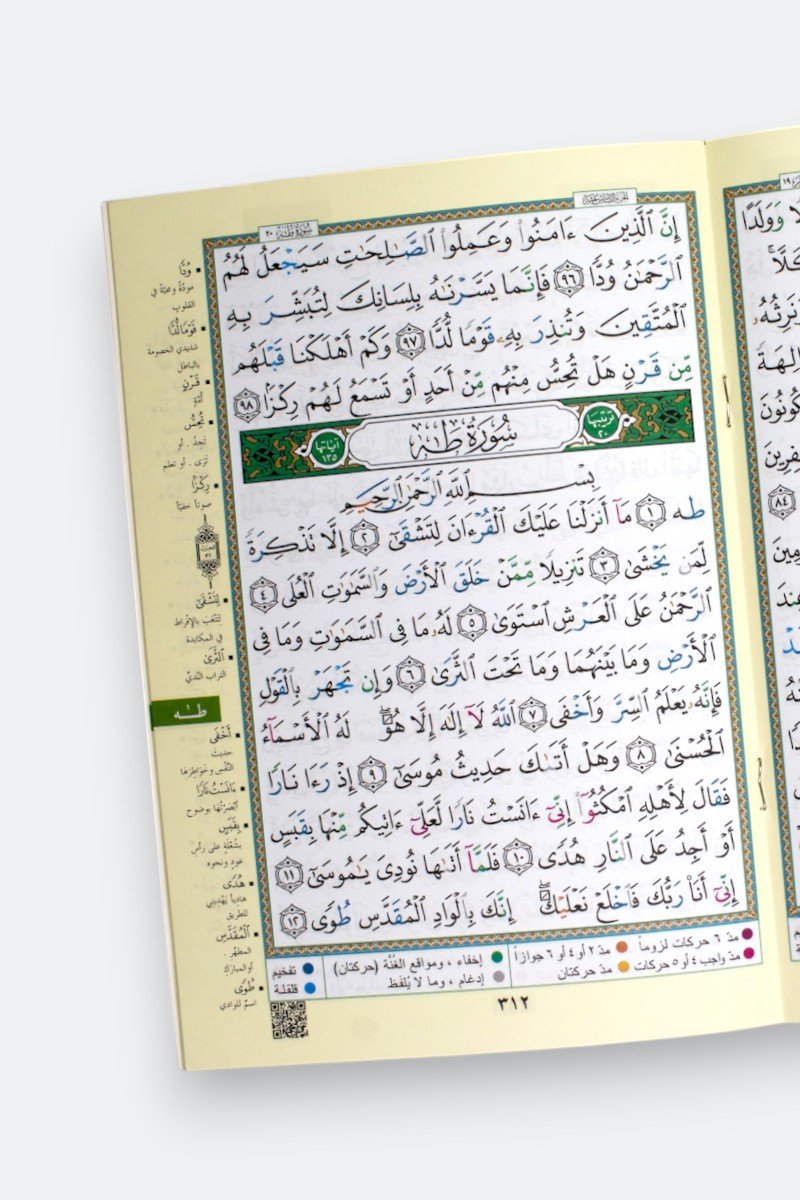 سُورَةُ طه ٢٠
إِنَّ ٱلَّذِينَ ءَامَنُوا۟ وَعَمِلُوا۟ ٱلصَّٰلِحَٰتِ سَيَجْعَلُ لَهُمُ
ٱلرَّحْمَٰنُ وُدًّا ٩٦ فَإِنَّمَا يَسَّرْنَٰهُ بِلِسَانِكَ لِتُبَشِّرَ بِهِ
ٱلْمُتَّقِينَ وَتُنذِرَ بِهِۦ قَوْمًا لُّدًّا ٩٧ وَكَمْ أَهْلَكْنَا قَبْلَهُم
مِّن قَرْنٍ هَلْ تُحِسُّ مِنْهُم مِّنْ أَحَدٍ أَوْ تَسْمَعُ لَهُمْ رِكْزًا ٩٨
ترتيبها ٢٠ سُورَةُ طه آياتها ١٣٥
بِسْمِ ٱللَّهِ ٱلرَّحْمَٰنِ ٱلرَّحِيمِ
طه ١ مَآ أَنزَلْنَا عَلَيْكَ ٱلْقُرْءَانَ لِتَشْقَىٰٓ ٢ إِلَّا تَذْكِرَةً
لِّمَن يَخْشَىٰ ٣ تَنزِيلًا مِّمَّنْ خَلَقَ ٱلْأَرْضَ وَٱلسَّمَٰوَٰتِ ٱلْعُلَى ٤
ٱلرَّحْمَٰنُ عَلَى ٱلْعَرْشِ ٱسْتَوَىٰ ٥ لَهُۥ مَا فِى ٱلسَّمَٰوَٰتِ وَمَا فِى
ٱلْأَرْضِ وَمَا بَيْنَهُمَا وَمَا تَحْتَ ٱلثَّرَىٰ ٦ وَإِن تَجْهَرْ بِٱلْقَوْلِ
فَإِنَّهُۥ يَعْلَمُ ٱلسِّرَّ وَأَخْفَى ٧ ٱللَّهُ لَآ إِلَٰهَ إِلَّا هُوَ ۖ لَهُ ٱلْأَسْمَآءُ
ٱلْحُسْنَىٰ ٨ وَهَلْ أَتَىٰكَ حَدِيثُ مُوسَىٰٓ ٩ إِذْ رَءَا نَارًا
فَقَالَ لِأَهْلِهِ ٱمْكُثُوٓا۟ إِنِّىٓ ءَانَسْتُ نَارًا لَّعَلِّىٓ ءَاتِيكُم مِّنْهَا بِقَبَسٍ
أَوْ أَجِدُ عَلَى ٱلنَّارِ هُدًى ١٠ فَلَمَّآ أَتَىٰهَا نُودِىَ يَٰمُوسَىٰٓ ١١
إِنِّىٓ أَنَا۠ رَبُّكَ فَٱخْلَعْ نَعْلَيْكَ ۖ إِنَّكَ بِٱلْوَادِ ٱلْمُقَدَّسِ طُوًى ١٢
مدّ ٦ حركات لزوماً
مدّ ٢ أو ٤ أو ٦ جوازاً
مدّ واجب ٤ أو ٥ حركات
مدّ حركتان
إخفاء ، ومواقع الغُنَّة (حركتان)
إدغام ، وما لا يُلفَظ
تفخيم
قلقلة
٣١٢
وُدًّا
مودّةً ومحبّةً في
القلوب
قَوْمًا لُّدًّا
شديدي الخصومة
بالباطل
قَرْنٍ
أمّةٍ
تُحِسُّ
تجدُ . أو
ترى . أو تعلم
رِكْزًا
صوتاً خفيّاً
الحزب
٣٢
لِتَشْقَىٰ
لتتعب بالإفراط
في المكابدة
ٱلثَّرَىٰ
التراب النّديّ
طه
أَخْفَى
حديث
النّفس وخواطرها
ءَانَسْتُ نَارًا
أبصرتُها بوضوح
بِقَبَسٍ
بشُعلةٍ على رأس
عودٍ ونحوه
هُدًى
هادياً يهديني
للطريق
ٱلْمُقَدَّسِ
المطهّر .
أو المبارك
طُوًى
اسمٌ للوادي
١٩
وَوَلَدًا
ءَالِهَةً
٨٤